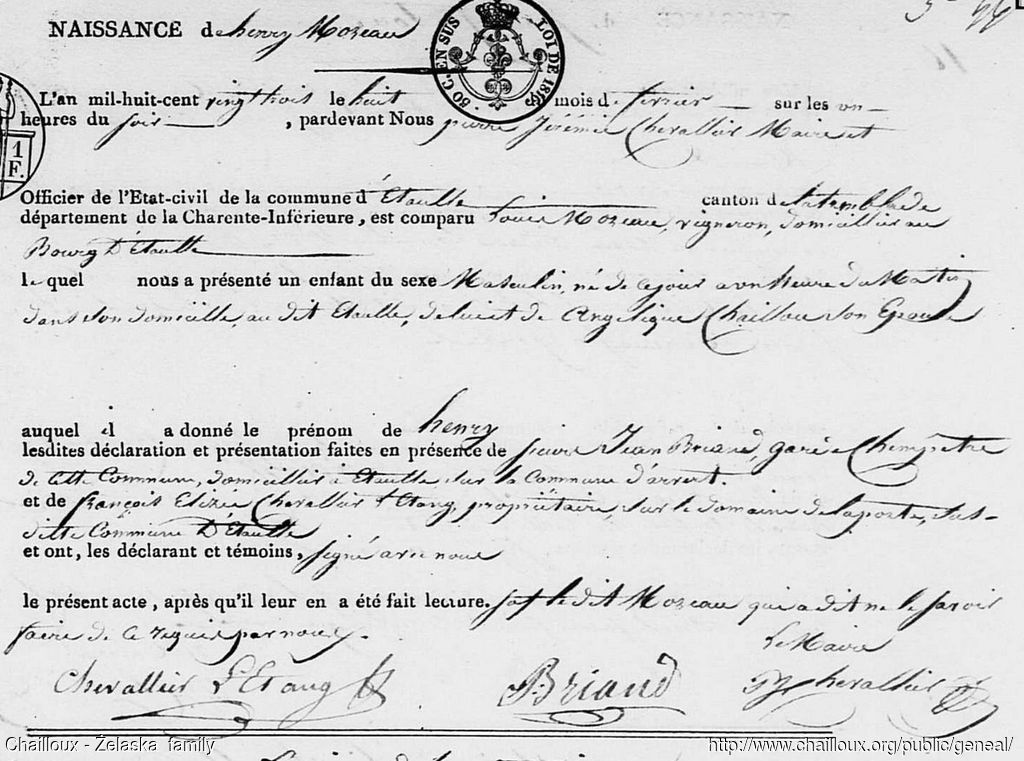 NAISSANCE de henry Moreau
50 C. EN SUS LOI DE 1816
1 F.
L'an mil-huit-cent vingt trois le huit mois de fevrier sur les
heures du soir, pardevant Nous pierre Jérémie Chevallier Maire et
Officier de l'Etat-civil de la commune d'Etaulle canton de latremblade
département de la Charente-Inférieure, est comparu Louis Moreau, vigneron, domicillier au
Bourg D'Étaulle
le quel nous a présenté un enfant du sexe Masculin, né de ce jour a un heure du Matin
dans son domicille, au dit Etaulle, de lui et de Angelique Chaillou son Epouse
auquel il a donné le prénom de henry
lesdites déclaration et présentation faites en présence de pierre Jean Briand, garde Champetre
de cette Commune, domicillier à Etaulle sur la Commune d'arvert.
et de françois Elizée Chevallier L'Etang, propriétaire sur le domaine de laporte, sus-
ditte Commune D'Étaulle
et ont, les déclarant et témoins, signé avec nous
le présent acte, après qu'il leur en a été fait lecture. sof le dit Moreau qui a dit ne le savoir
faire de ce requis par nous.
Le Maire
Chevallier L'Etang Briand PJ Chevallier
Chailloux - Żelaska family http://www.chailloux.org/public/geneal/